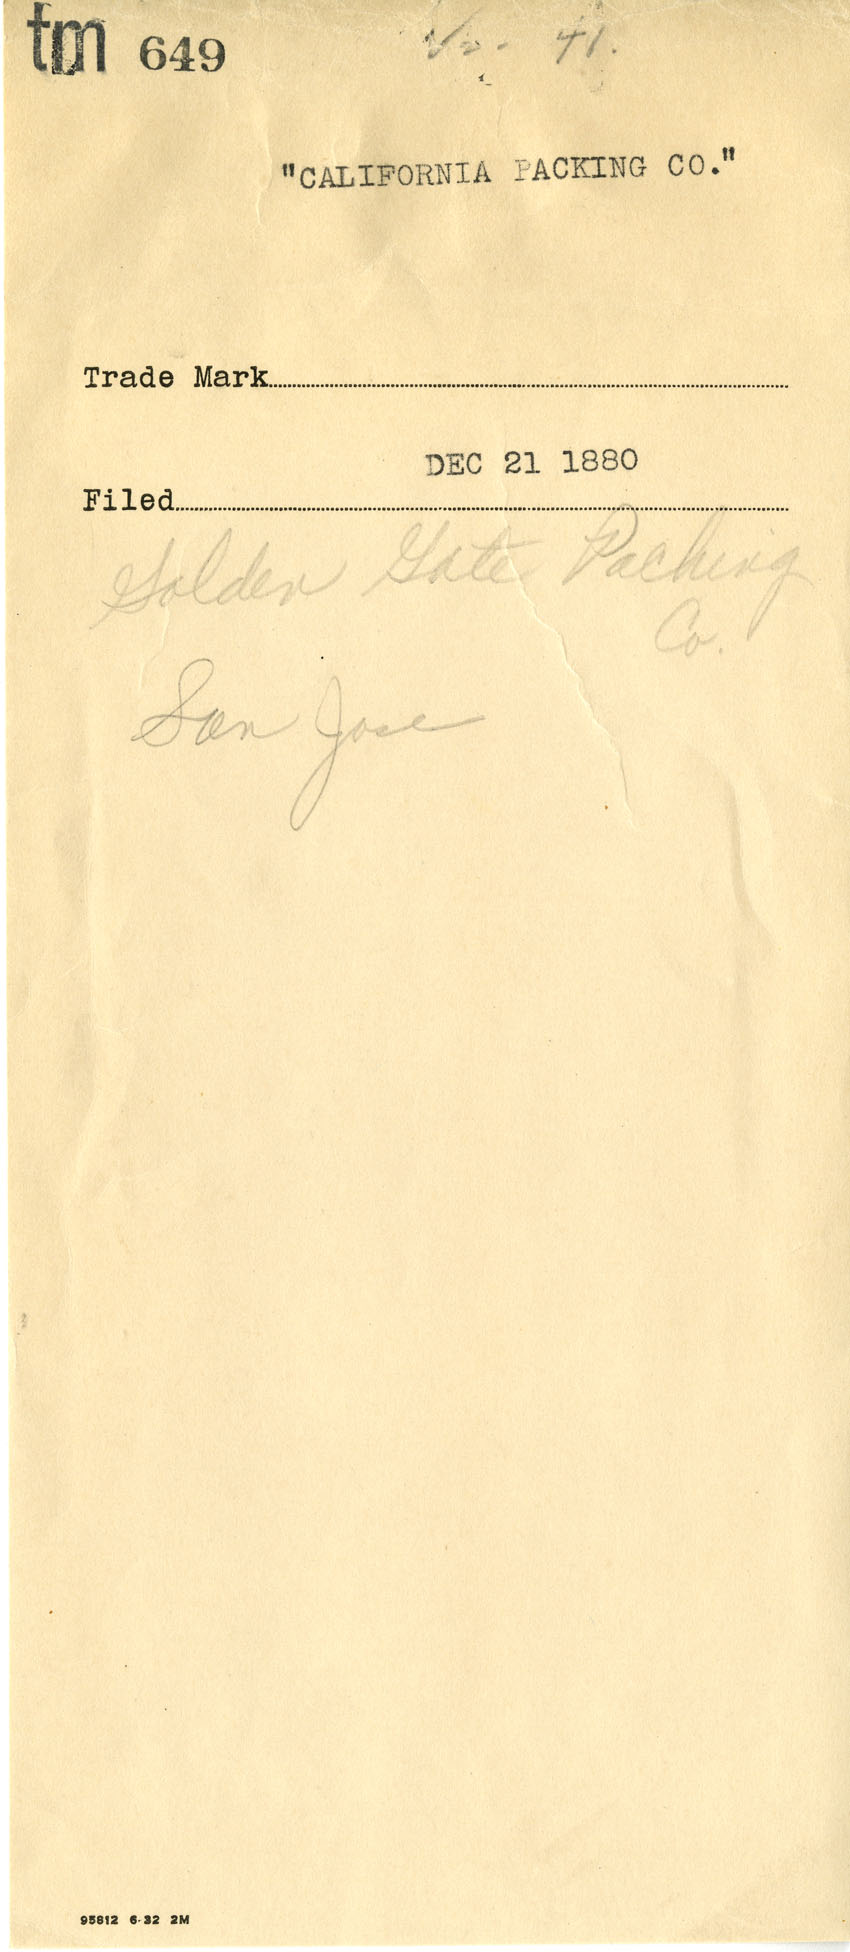 tm 649
41.
"CALIFORNIA PACKING CO."
Trade Mark
DEC 21 1880
Filed
Golden Gate Packing
Co.
San Jose
95812 6-32 2M